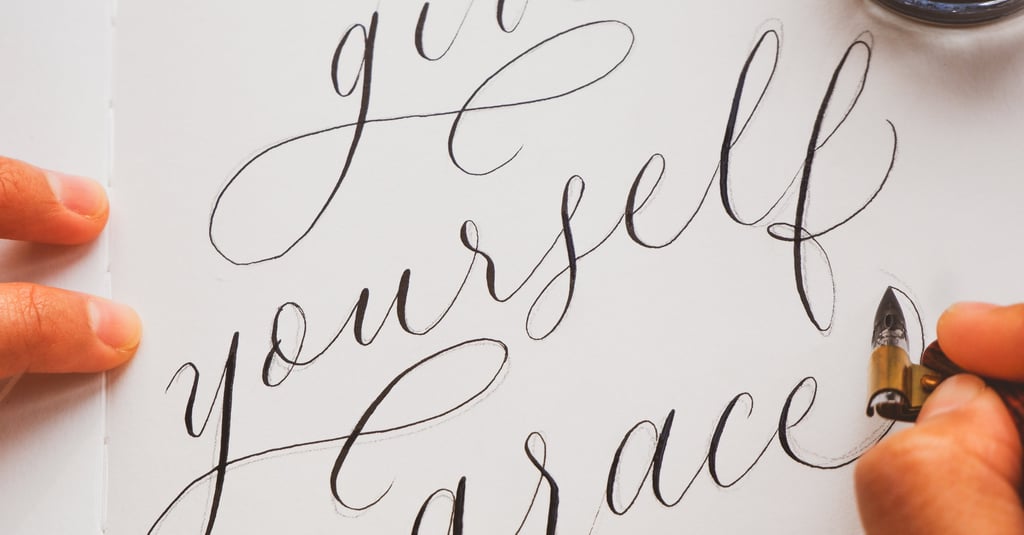 give
yourself
grace